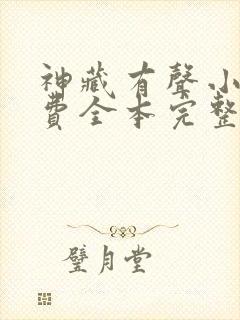 神藏有聲小
費全本完整
璧月堂